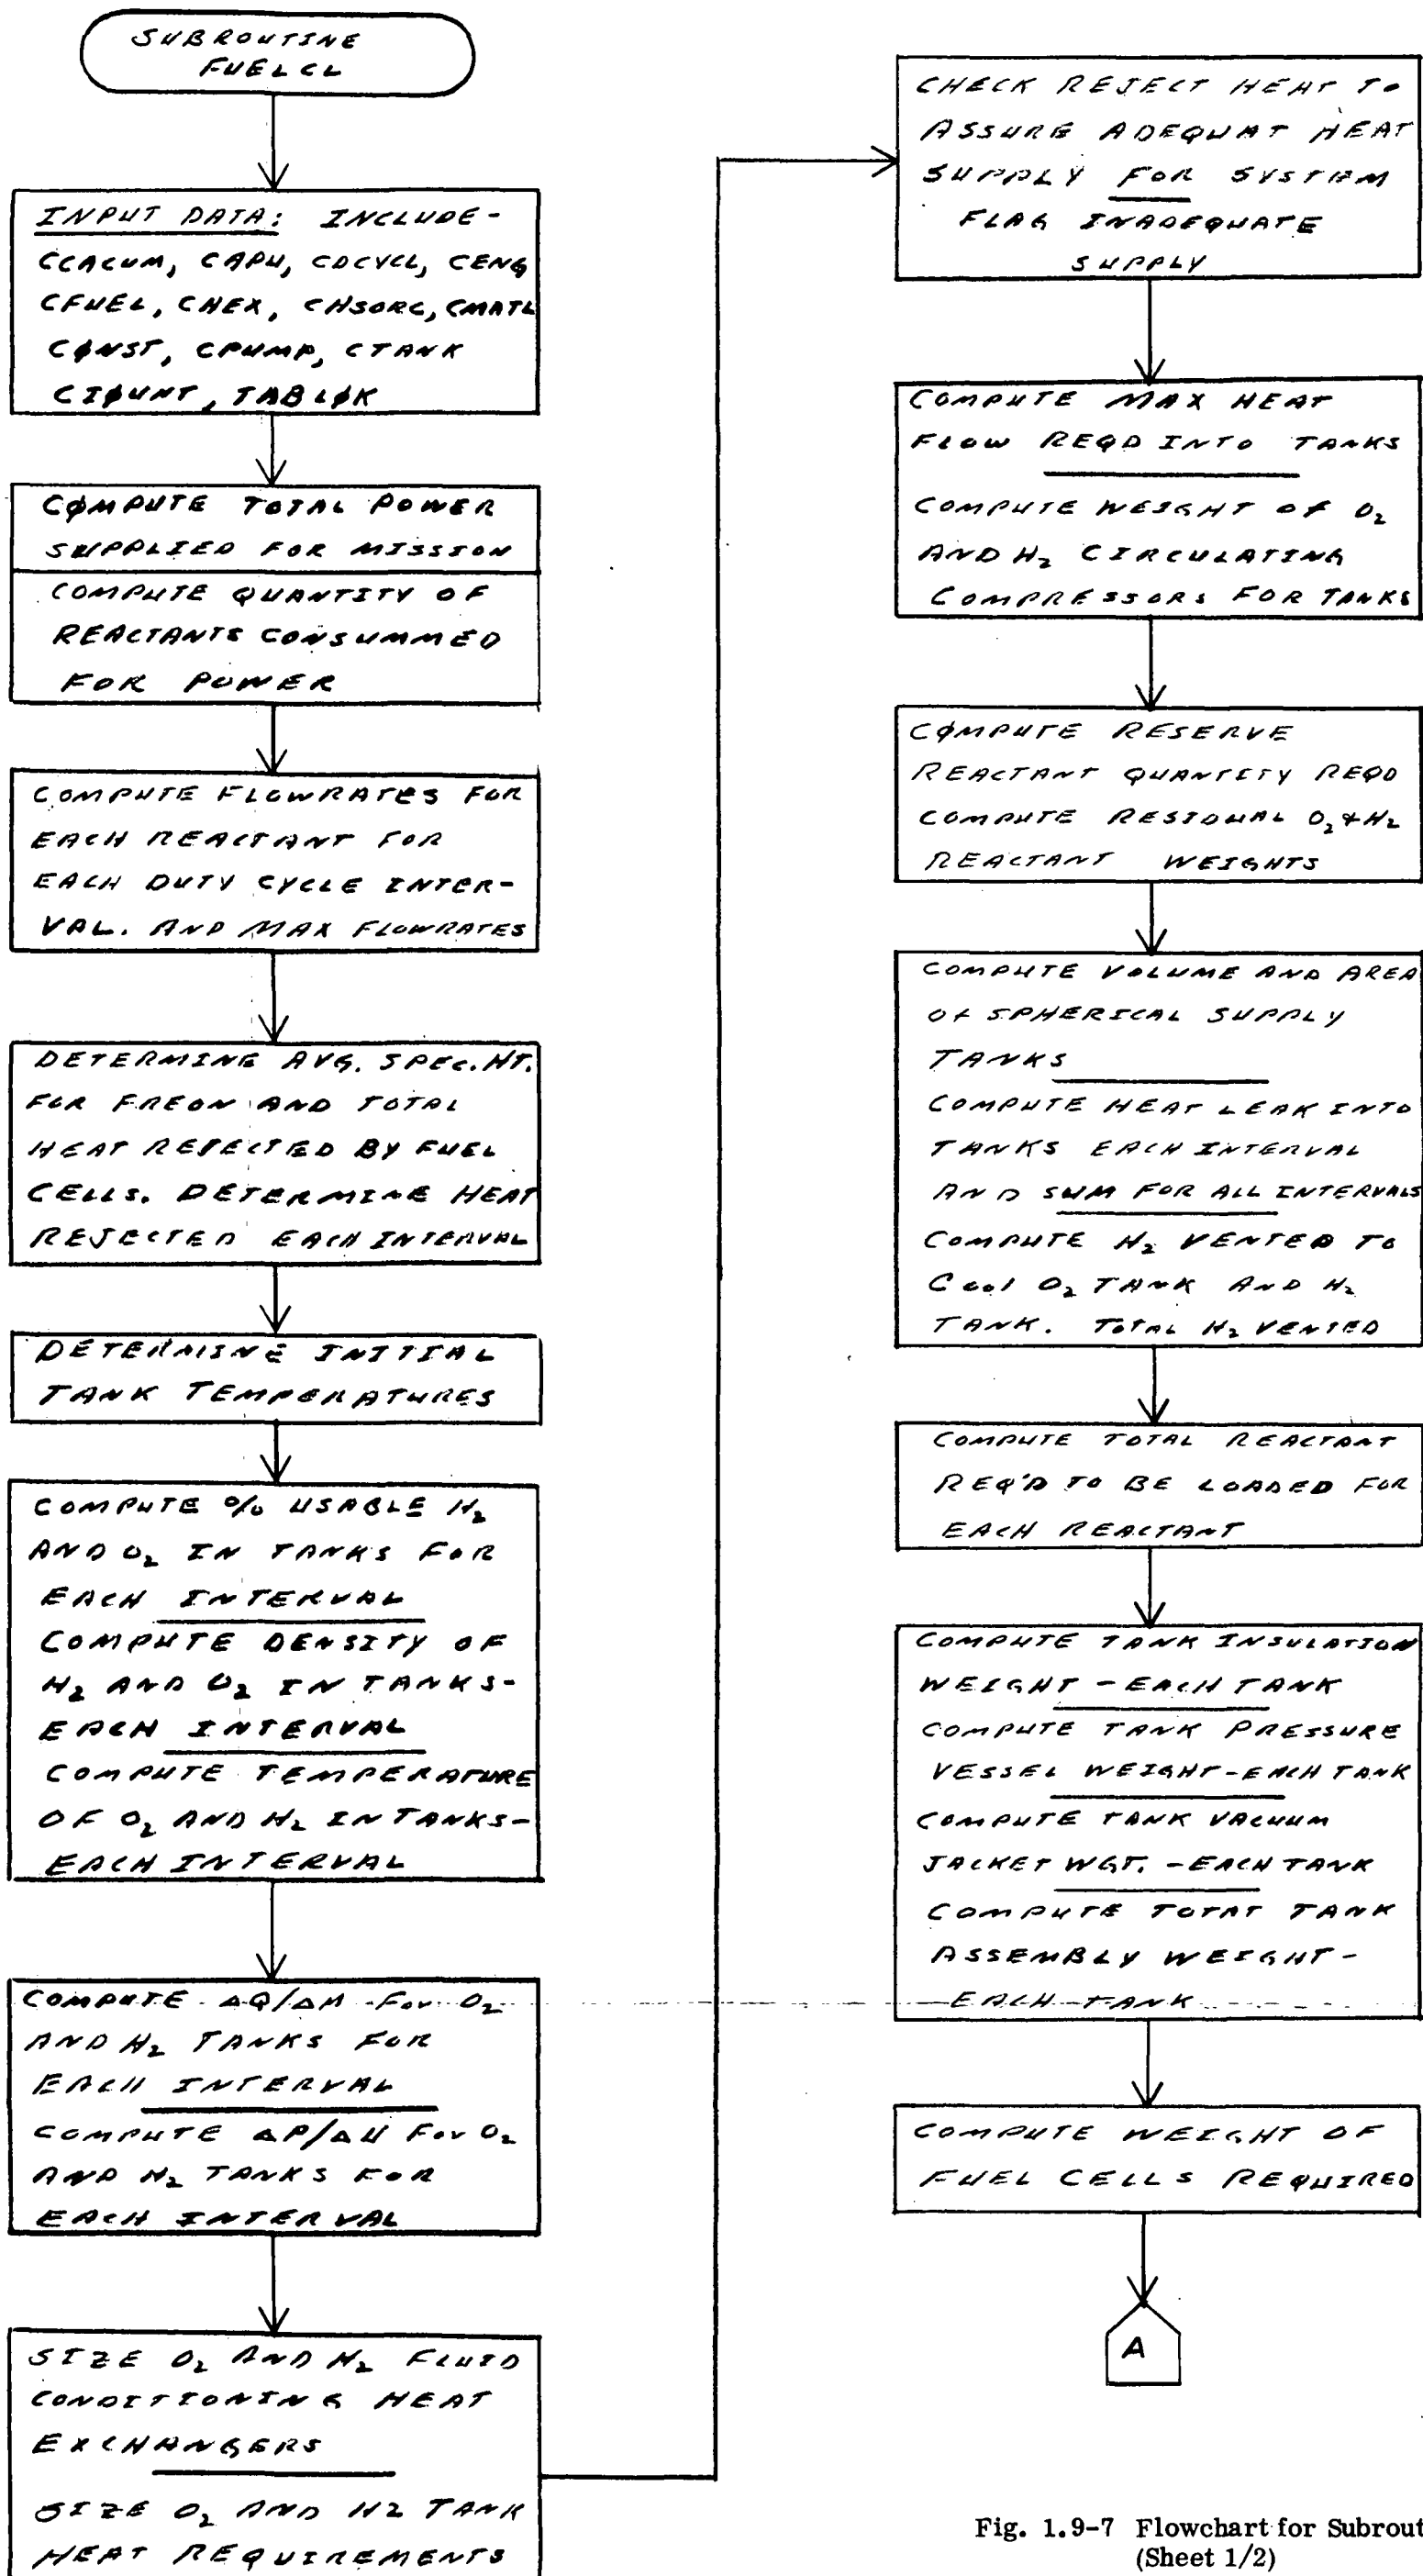 SUBROUTINE
FUELCL
INPUT DATA: INCLUDE-
CCACUM, CAPU, CDCYCL, CENG
CFUEL, CHEX, CHSORC, CMATL
CØNST, CPUMP, CTANK
CIØUNT, TABLØK
CØMPUTE TOTAL POWER
SUPPLIED FOR MISSION
COMPUTE QUANTITY OF
REACTANTS CONSUMMED
FOR POWER
COMPUTE FLOWRATES FOR
EACH REACTANT FOR
EACH DUTY CYCLE INTER-
VAL. AND MAX FLOWRATES
DETERMINE AVG. SPEC. HT.
FOR FREON AND TOTAL
HEAT REJECTED BY FUEL
CELLS. DETERMINE HEAT
REJECTED EACH INTERVAL
DETERMINE INITIAL
TANK TEMPERATURES
COMPUTE % USABLE H2
AND O2 IN TANKS FOR
EACH INTERVAL
COMPUTE DENSITY OF
H2 AND O2 IN TANKS-
EACH INTERVAL
COMPUTE TEMPERATURE
OF O2 AND H2 IN TANKS-
EACH INTERVAL
COMPUTE ΔQ/ΔM For O2
AND H2 TANKS FOR
EACH INTERVAL
COMPUTE ΔP/ΔU For O2
AND H2 TANKS FOR
EACH INTERVAL
SIZE O2 AND H2 FLUID
CONDITIONING HEAT
EXCHANGERS
SIZE O2 AND H2 TANK
HEAT REQUIREMENTS
CHECK REJECT HEAT TO
ASSURE ADEQUAT HEAT
SUPPLY FOR SYSTEM
FLAG INADEQUATE
SUPPLY
COMPUTE MAX HEAT
FLOW REQD INTO TANKS
COMPUTE WEIGHT OF O2
AND H2 CIRCULATING
COMPRESSORS FOR TANKS
CØMPUTE RESERVE
REACTANT QUANTITY REQD
COMPUTE RESIDUAL O2 & H2
REACTANT WEIGHTS
COMPUTE VOLUME AND AREA
Of SPHERICAL SUPPLY
TANKS
COMPUTE HEAT LEAK INTO
TANKS EACH INTERVAL
AND SUM FOR ALL INTERVALS
COMPUTE H2 VENTED TO
Cool O2 TANK AND H2
TANK. TOTAL H2 VENTED
COMPUTE TOTAL REACTANT
REQ'D TO BE LOADED FOR
EACH REACTANT
COMPUTE TANK INSULATION
WEIGHT - EACH TANK
COMPUTE TANK PRESSURE
VESSEL WEIGHT - EACH TANK
COMPUTE TANK VACUUM
JACKET WGT. - EACH TANK
COMPUTE TOTAT TANK
ASSEMBLY WEIGHT -
EACH TANK
COMPUTE WEIGHT OF
FUEL CELLS REQUIRED
A
Fig. 1.9-7 Flowchart for Subrout
(Sheet 1/2)